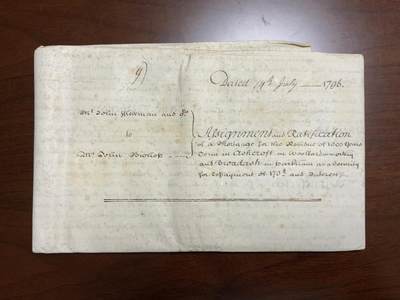 9)
Dated 19th July 1796.
Mr. John Sherman and Jno.
to
Mr. John Bishop
Assignment and Ratification
of a Mortgage for the Residue of 1000 Years
Term in Ashcroft in Woollard
and Broadash in as a Security
for repayment of 170£ and Interest